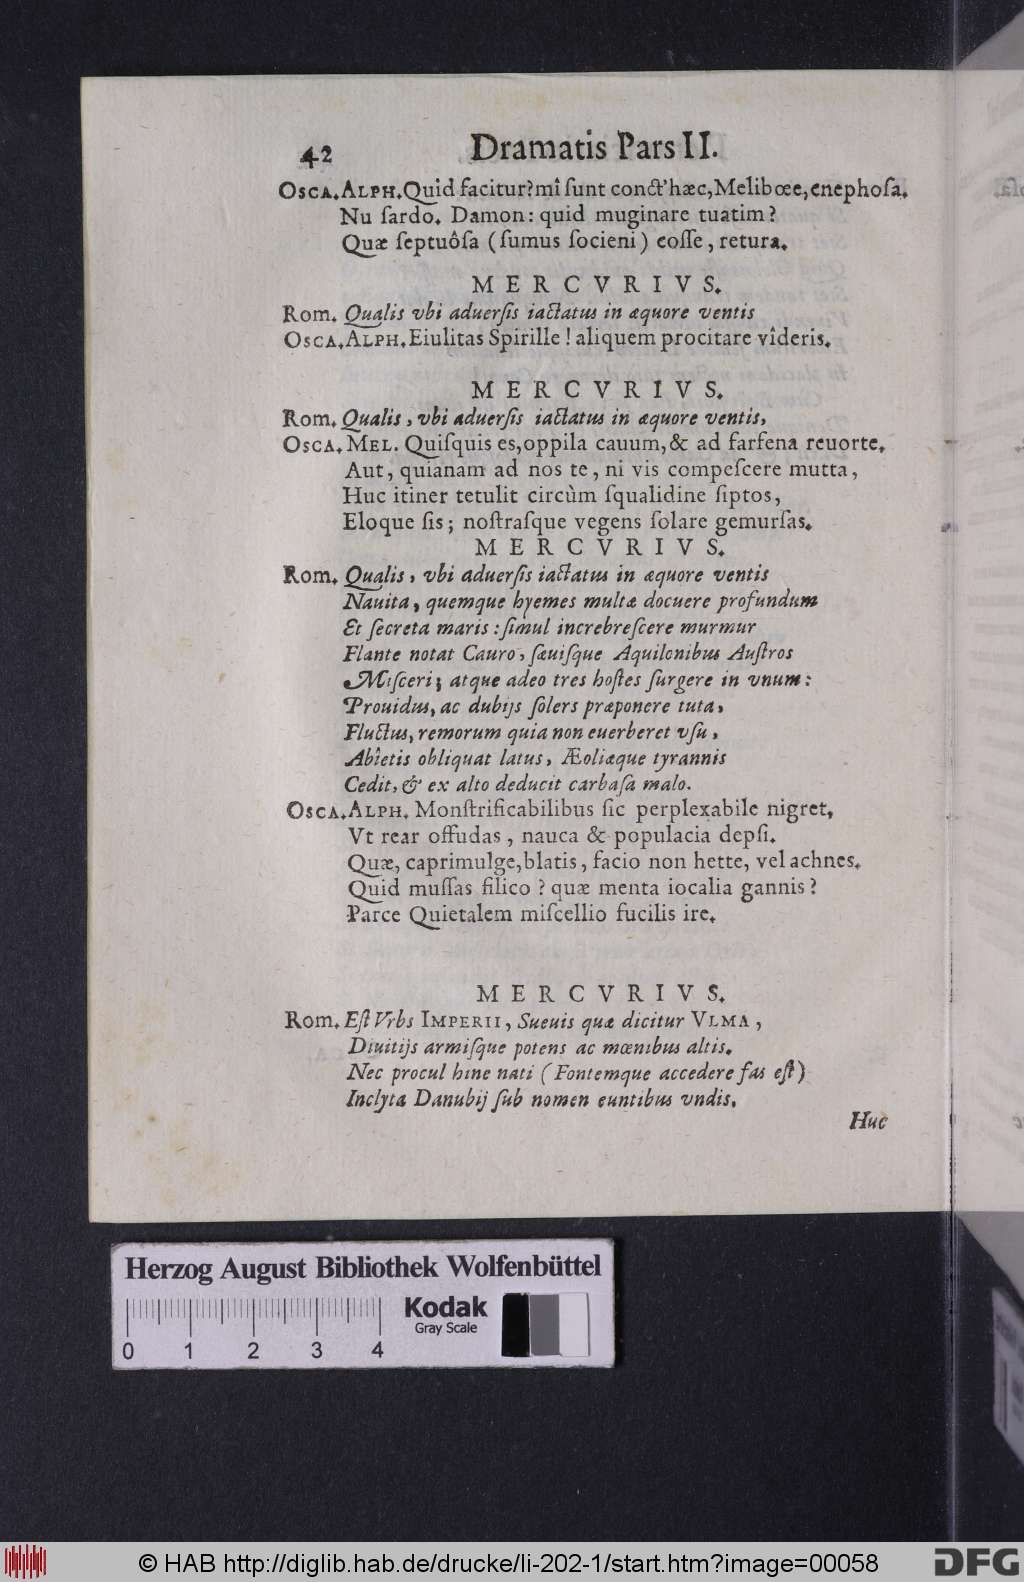 42 Dramatis Pars II.
OSCA. ALPH. Quid facitur? mî ſunt conct' hæc, Melibœe, enephoſa.
Nu ſardo. Damon: quid muginare tuatim?
Quæ ſeptuôſa (ſumus ſocieni) eoſſe, retura.
MERCVRIVS.
Rom. Qualis vbi aduerſis iactatus in æquore ventis
OSCA. ALPH. Eiulitas Spirille! aliquem procitare vîderis.
MERCVRIVS.
Rom. Qualis, vbi aduerſis iactatus in æquore ventis,
OSCA. MEL. Quiſquis es, oppila cauum, & ad farfena reuorte.
Aut, quianam ad nos te, ni vis compeſcere mutta,
Huc itiner tetulit circùm ſqualidine ſiptos,
Eloque ſis; noſtraſque vegens ſolare gemurſas.
MERCVRIVS.
Rom. Qualis, vbi aduerſis iactatus in æquore ventis
Nauita, quemque hyemes multæ docuere profundum
Et ſecreta maris: ſimul increbreſcere murmur
Flante notat Cauro, ſæuiſque Aquilonibus Auſtros
Miſceri; atque adeo tres hoſtes ſurgere in vnum:
Prouidus, ac dubijs ſolers præponere tuta,
Fluctus, remorum quia non euerberet vſu,
Abîetis obliquat latus, Æoliæque tyrannis
Cedit, & ex alto deducit carbaſa malo.
OSCA. ALPH. Monſtrificabilibus ſic perplexabile nigret,
Vt rear offudas, nauca & populacia depſi.
Quæ, caprimulge, blatis, facio non hette, vel achnes.
Quid muſſas filico? quæ menta iocalia gannis?
Parce Quietalem miſcellio fucilis ire.
MERCVRIVS.
Rom. Eſt Vrbs IMPERII, Sueuis quæ dicitur VLMA,
Diuitijs armiſque potens ac mœnibus altis.
Nec procul hinc nati (Fontemque accedere fas eſt)
Inclyta Danubij ſub nomen euntibus vndis.
Huc
Herzog August Bibliothek Wolfenbüttel
Kodak
Gray Scale
0 1 2 3 4
© HAB http://diglib.hab.de/drucke/li-202-1/start.htm?image=00058
DFG